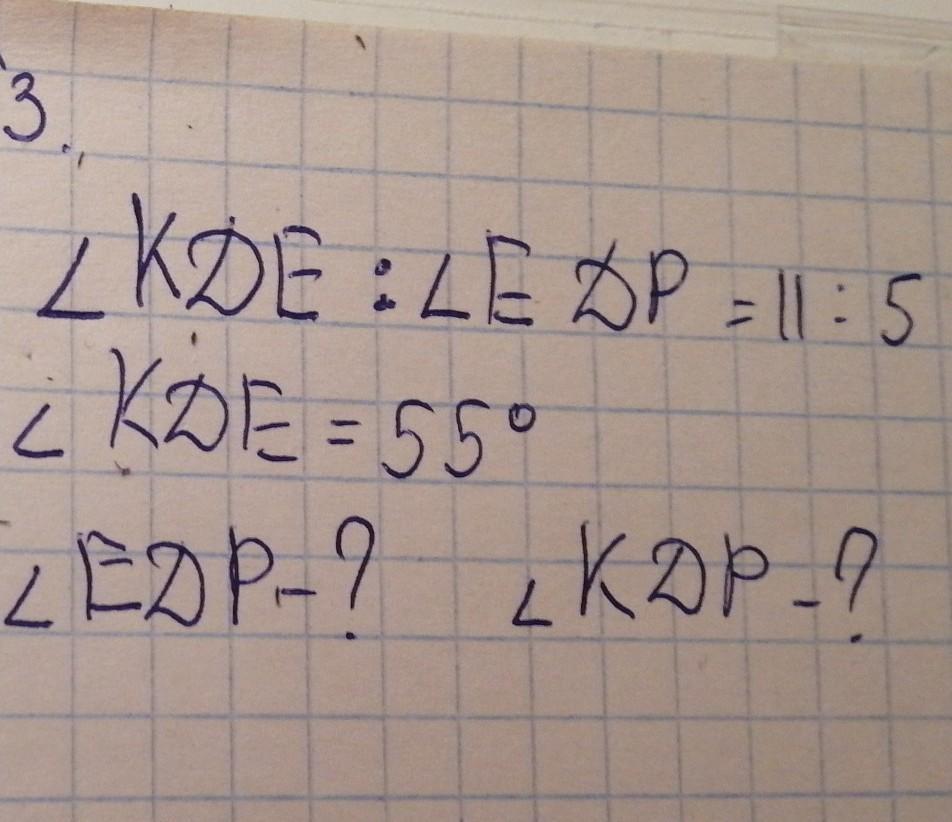 3.
∠KDE : ∠EDP = 11 : 5
∠KDE = 55°
∠EDP - ? ∠KDP - ?